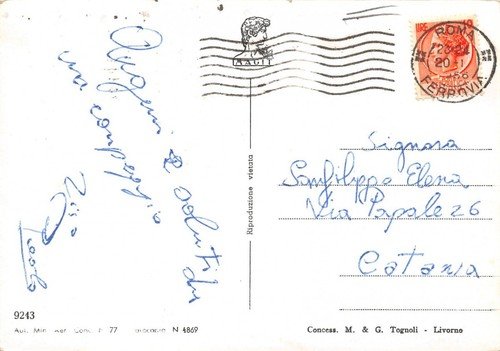 Auguri e saluti da
un compagno
Zizo
Paolo
ROMA
20
FERROVIA
Signora
Sanfilippo Elena
Via Papale 26
Catania
Riproduzione vietata
9243
Aut. Min. Aer. Conc. 77 N 4869
Concess. M. & G. Tognoli - Livorno